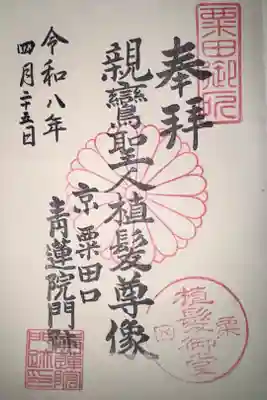 奉拝
親鸞聖人植髪尊像
京 粟田口
青蓮院門跡
令和八年
四月二十五日
粟田御所
植髪御堂
粟
青蓮院
門跡印